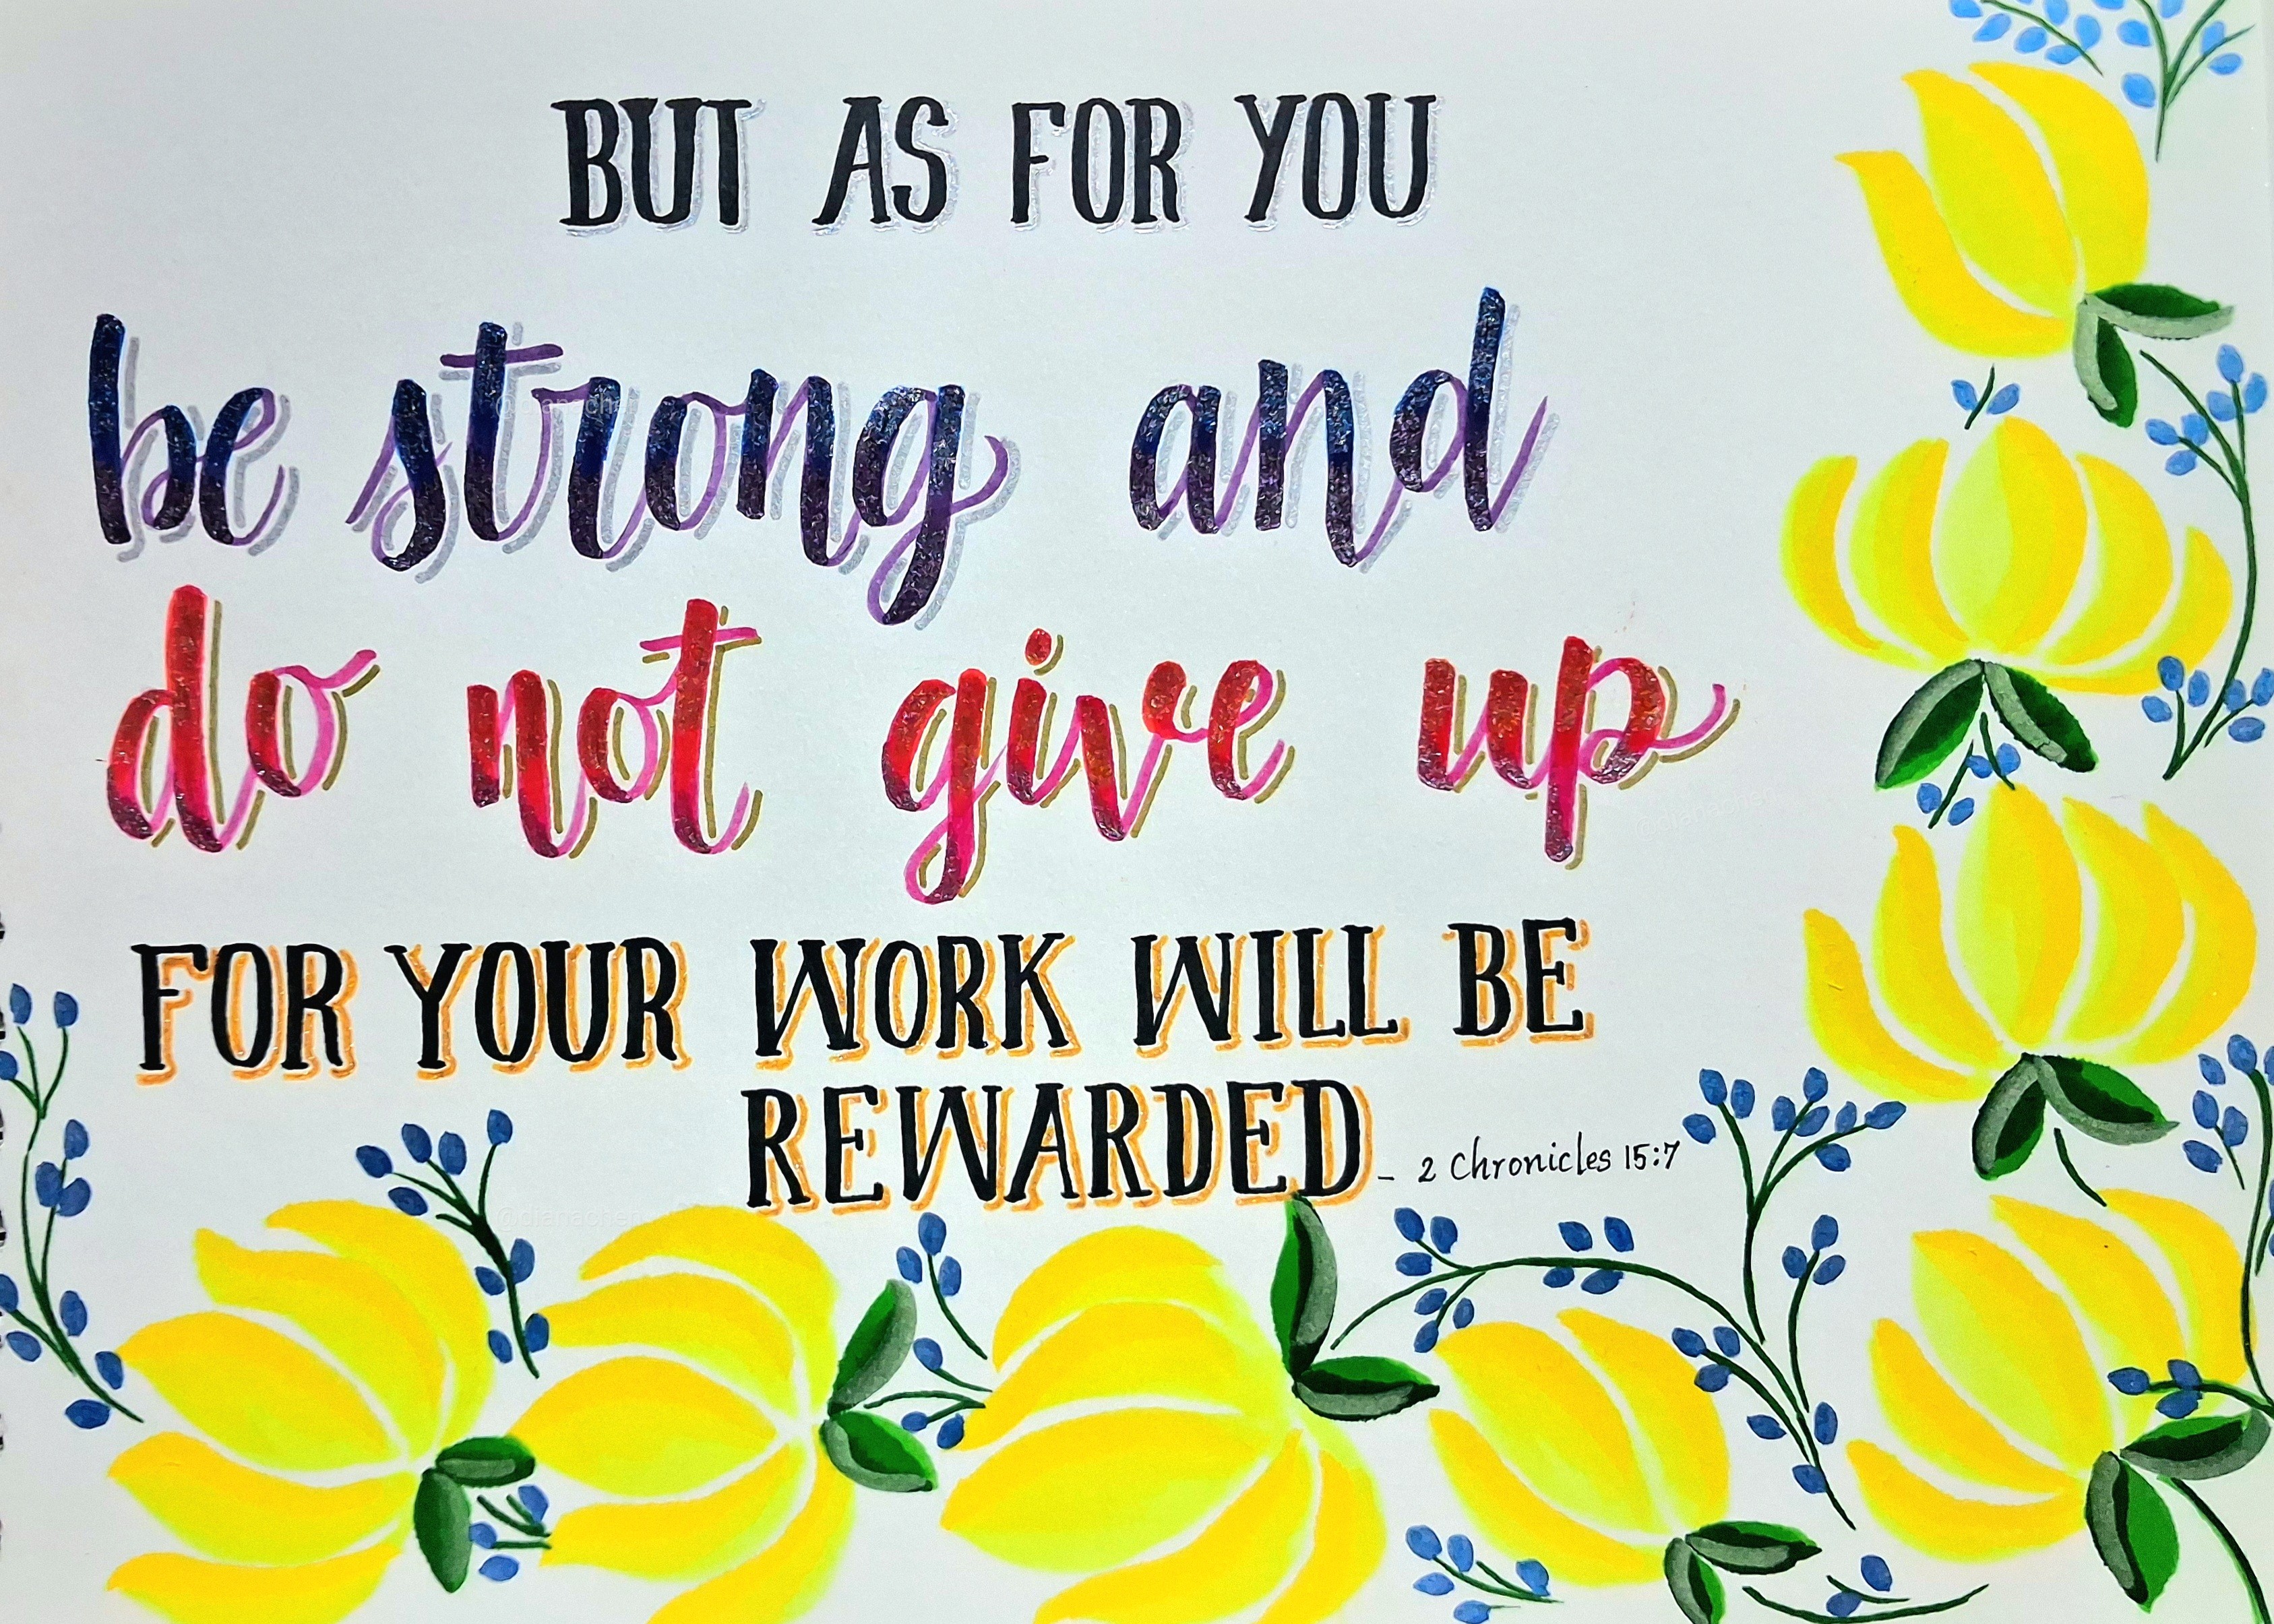 BUT AS FOR YOU
be strong and
do not give up
FOR YOUR WORK WILL BE
REWARDED
- 2 Chronicles 15:7